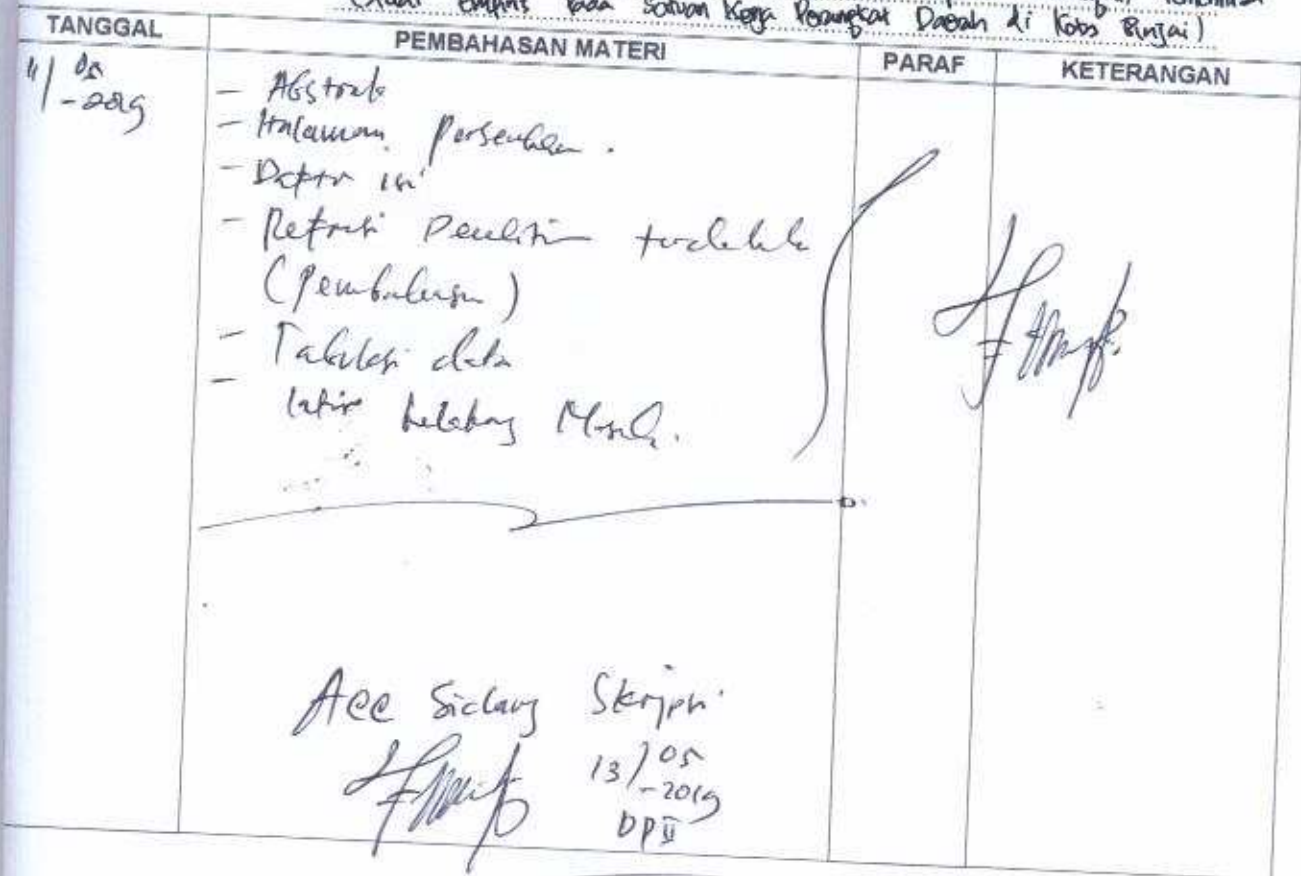 (Studi Empiris Pada Satuan Kerja Perangkat Daerah di Kota Binjai)
TANGGAL PEMBAHASAN MATERI PARAF KETERANGAN
11/05-2019
- Abstrak
- Halaman Persembahan.
- Daftar isi
- Refrensi Penelitian terdahulu
(Pembahasan)
- Tabulasi data
- latar belakang Masalah.
Acc Sidang Skripsi
13/05-2019
DP II